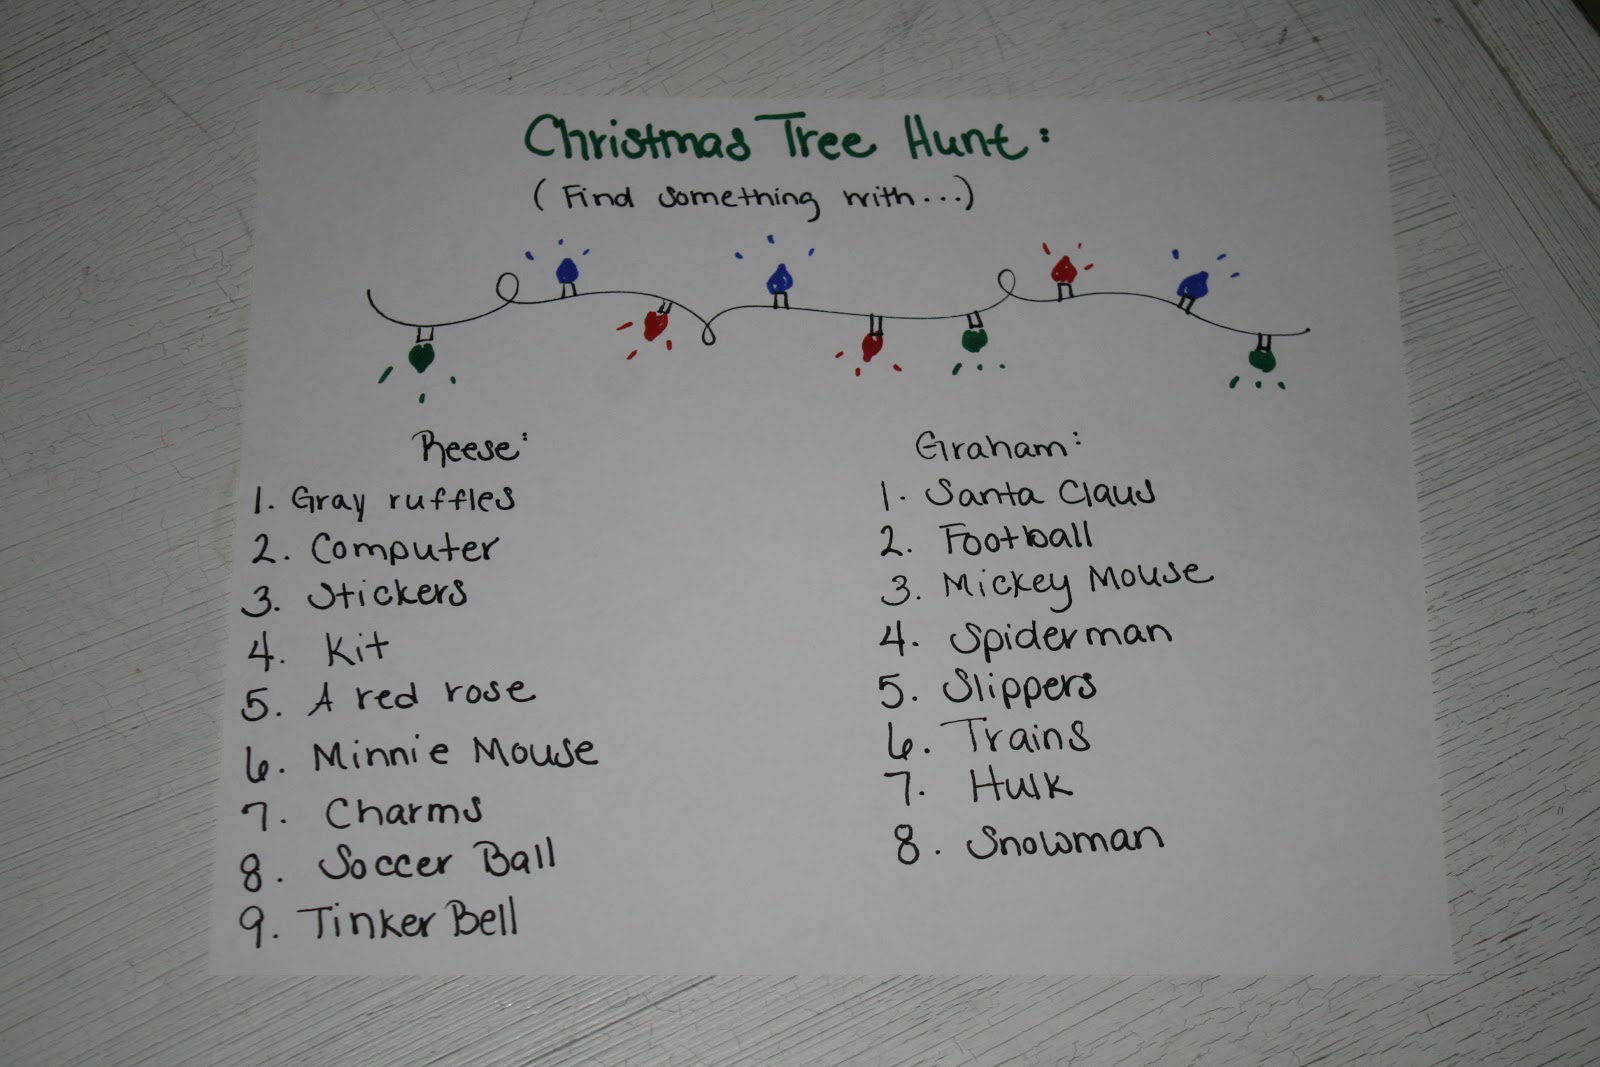 Christmas Tree Hunt:
(Find something with...)
Reese:
1. Gray ruffles
2. Computer
3. Stickers
4. Kit
5. A red rose
6. Minnie Mouse
7. Charms
8. Soccer Ball
9. Tinker Bell
Graham:
1. Santa Claus
2. Football
3. Mickey Mouse
4. Spiderman
5. Slippers
6. Trains
7. Hulk
8. Snowman